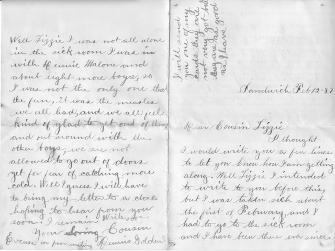 Sandwich Feb 12 - 87
Dear Cousin Lizzie
I thought
I would write you a few lines
to let you know how I am getting
along. Well Lizzie I intended
to write to you before this,
but I was taken sick about
the first of February, and I
had to go to the sick room
and I have been there ever since
Well Lizzie I was not all alone
in the sick room I was in
with Hennie Malone and
about eight more boys, so
I was not the only one that
the fun, it was the measles
we all had, and we all feel
kind of glad to get out of
and get around with the
other boys, we are not
allowed to go out of doors
yet for fear of catching more
cold. Well I guess I will have
to bring my letter to a close
hoping to hear from you
soon I remain
Your loving Cousin
I will send
you one of my
cards they are
not very
they are good
as I have